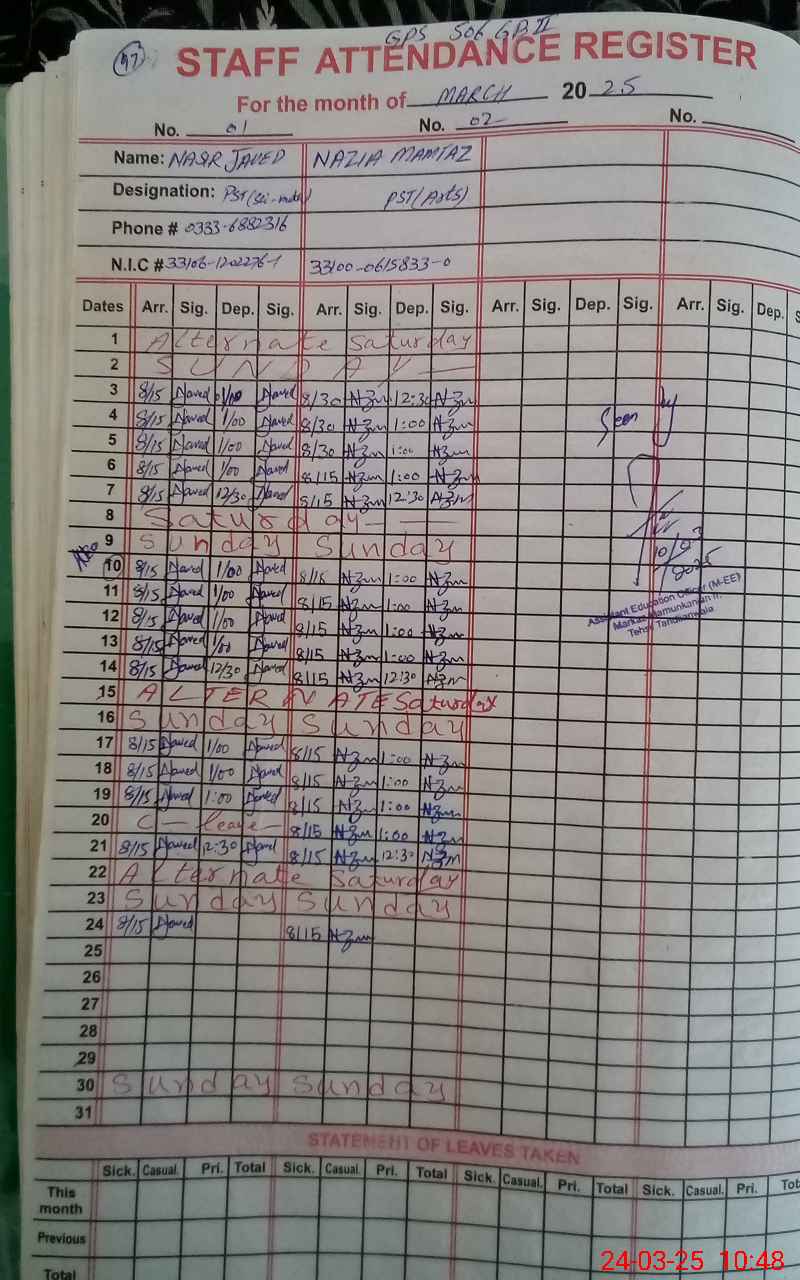 97
GPS 506 GB II
STAFF ATTENDANCE REGISTER
For the month of MARCH 2025
No. 01 No. 02 No.
Name: NASR JAVED NAZIA MAMTAZ
Designation: PST (Sci-math) PST (Arts)
Phone # 0333-6882316
N.I.C # 33106-1202276-1 33100-0615833-0
Dates Arr. Sig. Dep. Sig. Arr. Sig. Dep. Sig. Arr. Sig. Dep. Sig. Arr. Sig. Dep.
1 Alternate Saturday
2 SUNDAY
3 8/15 Javed 1/00 Javed 8/30 Nzm 12:30 Nzm
4 8/15 Javed 1/00 Javed 8/30 Nzm 1:00 Nzm
Seen by
5 8/15 Javed 1/00 Javed 8/30 Nzm 1:00 Nzm
6 8/15 Javed 1/00 Javed 8/15 Nzm 1:00 Nzm
7 8/15 Javed 12/30 Javed 8/15 Nzm 12:30 Nzm
8 Saturday
9 Sunday Sunday
10 8/15 Javed 1/00 Javed 8/15 Nzm 1:00 Nzm
10/03
2025
11 8/15 Javed 1/00 Javed 8/15 Nzm 1:00 Nzm
Assistant Education Officer (M-EE)
Markaz Mamunkanjan II,
Tehsil Tandlianwala
12 8/15 Javed 1/00 Javed 8/15 Nzm 1:00 Nzm
13 8/15 Javed 1/00 Javed 8/15 Nzm 1:00 Nzm
14 8/15 Javed 12/30 Javed 8/15 Nzm 12:30 Nzm
15 ALTERNATE Saturday
16 Sunday Sunday
17 8/15 Javed 1/00 Javed 8/15 Nzm 1:00 Nzm
18 8/15 Javed 1/00 Javed 8/15 Nzm 1:00 Nzm
19 8/15 Javed 1:00 Javed 8/15 Nzm 1:00 Nzm
20 C - leave 8/15 Nzm 1:00 Nzm
21 8/15 Javed 12:30 Javed 8/15 Nzm 12:30 Nzm
22 Alternate Saturday
23 Sunday Sunday
24 8/15 Javed 8/15 Nzm
25
26
27
28
29
30 Sunday Sunday
31
STATEMENT OF LEAVES TAKEN
Sick. Casual. Pri. Total Sick. Casual. Pri. Total Sick. Casual. Pri. Total Sick. Casual. Pri. Tot
This month
Previous
Total
24-03-25 10:48